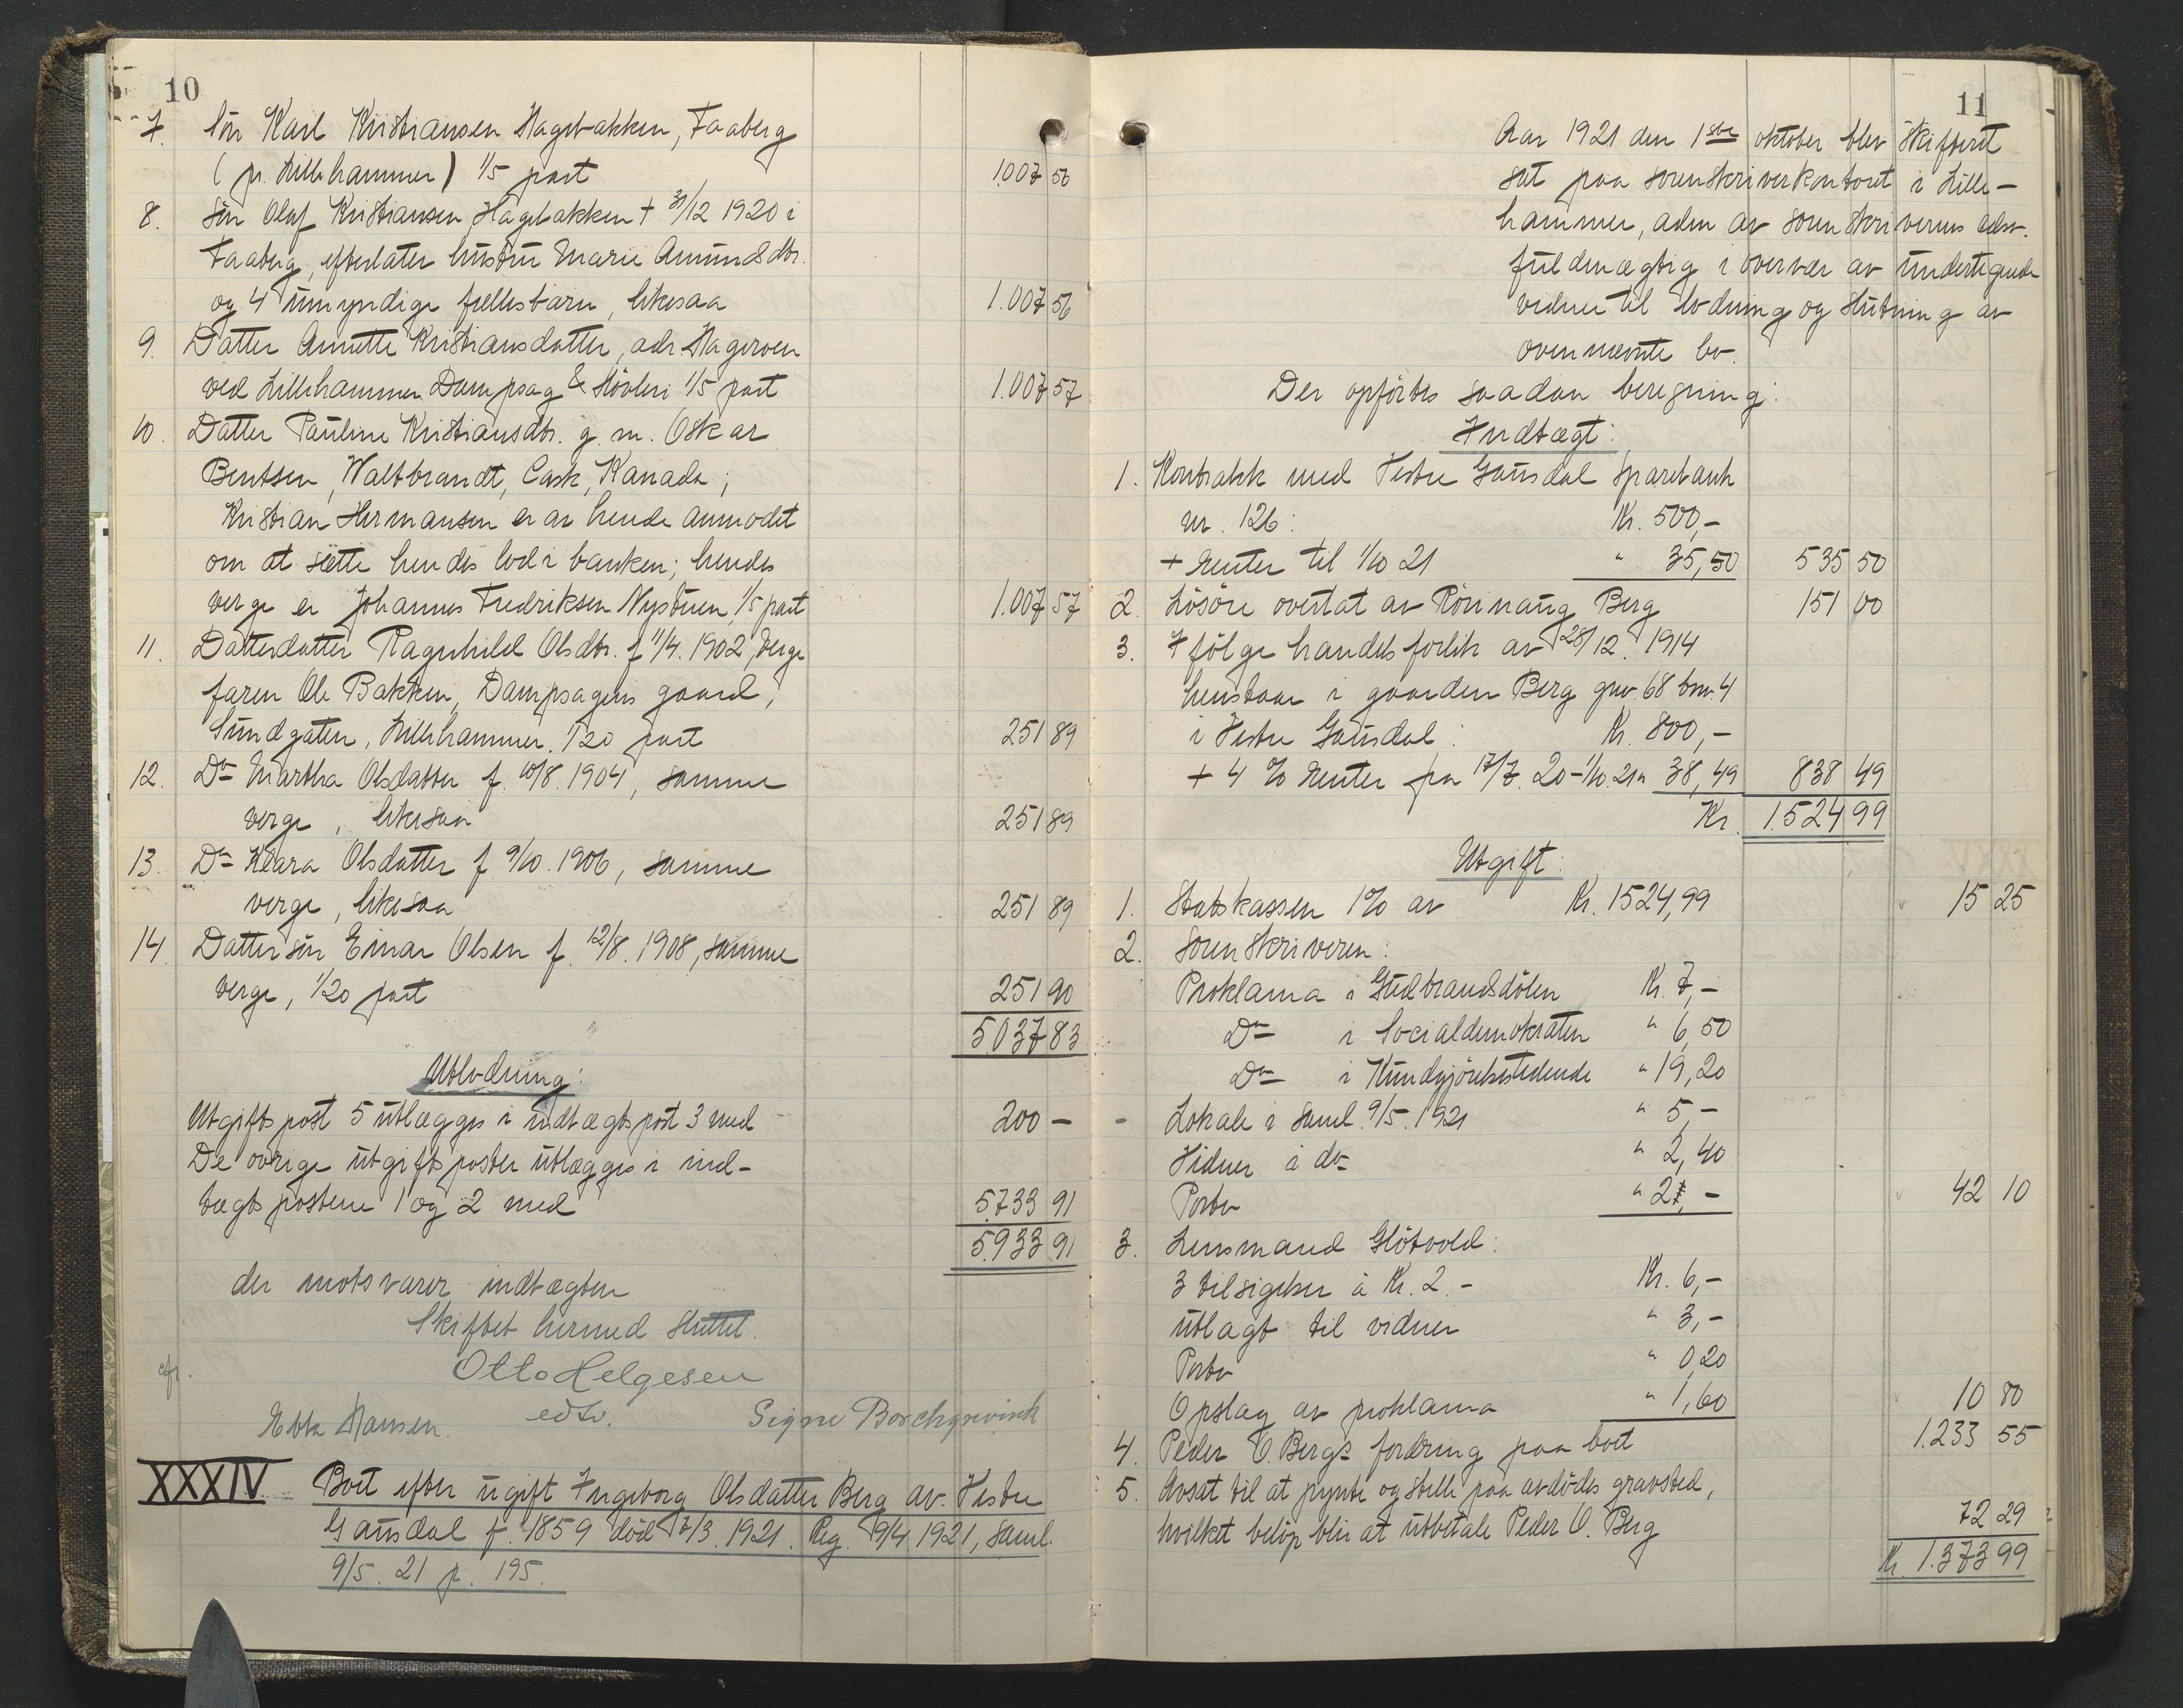 10
7. Sön Karl Kristiansen Hagebakken, Faaberg
(pr. Lillehammer) 1/5 part 1.007 56
8. Sön Olaf Kristiansen Hagebakken † 31/12 1920 i
Faaberg, efterlater hustru Marie Amundsdtr.
og 4 umyndige fællesbarn, likesaa 1.007 56
9. Datter Annette Kristiansdatter, adr. Hageroen
ved Lillehammer Dampsag & Hövleri 1/5 part 1.007 57
10. Datter Pauline Kristiansdtr. g. m. Oskar
Bentsen, Waltbrandt, Cask, Kanada;
Kristian Hermansen er av hende anmodet
om at sætte hendes lod i banken; hendes
verge er Johannes Fredriksen Nystuen, 1/5 part 1.007 57
11. Datterdatter Ragnhild Olsdtr. f. 11/4. 1902, verge
faren Ole Bakken, Dampsagens gaard,
Sundgaten, Lillehammer. 1/20 part 251 89
12. Do Martha Olsdatter f. 10/8. 1904, samme
verge, likesaa 251 89
13. Do Klara Olsdatter f. 9/10. 1906, samme
verge, likesaa 251 89
14. Dattersön Einar Olsen f. 12/8. 1908, samme
verge, 1/20 part 251 90
5.037 83
Utlodning:
Utgiftspost 5 utlægges i indtægtspost 3 med 200 –
De övrige utgiftsposter utlægges i ind-
tægtspostene 1 og 2 med 5.733 91
5.933 91
der motsvarer indtægten
Skiftet hermed sluttet.
Otto Helgesen
edsv.
Ebba Hansen. Signe Borchgrevink
XXXIV Boet efter ugift Ingeborg Olsdatter Berg av Vestre
Gausdal f. 1859 död 7/3. 1921. Reg. 9/4 1921, saml.
9/5. 21 p. 195.
11
Aar 1921 den 1ste oktober blev skifteret
sat paa sorenskriverkontoret i Lille-
hammer, adm. av sorenskriverens edsv.
fuldmægtig i overvær av undertegnede
vidner til lodning og slutning av
ovennævnte bo.
Der opförtes saadan beregning:
Indtægt:
1. Kontrabok med Vestre Gausdal Sparebank
nr. 126: Kr. 500,–
+ renter til 1/10 21 " 35,50 535 50
2. Lösöre overtat av Rönnaug Berg 151 00
3. Ifölge handelsforlik av 28/12. 1914
henstaar i gaarden Berg gnr. 68 bnr. 4
i Vestre Gausdal: Kr. 800,–
+ 4 % renter fra 17/7. 20 – 1/10. 21 " 38,49 838 49
Kr. 1.524 99
Utgift:
1. Statskassen 1% av Kr. 1524,99 15 25
2. Sorenskriveren:
Proklama i Gudbrandsdölen Kr. 7,–
Do i Socialdemokraten " 6,50
Do i Kundgjörelsestidende " 19,20
Lokale i saml. 9/5. 1921 " 5,–
Vidner i do " 2,40
Porto " 2,– 42 10
3. Lensmand Slötvold:
3 tilsigelser à Kr. 2.– Kr. 6,–
utlagt til vidner " 3,–
Porto " 0,20
Opslag av proklama " 1,60 10 80
4. Peder O. Bergs fordring paa boet 1.233 55
5. Avsat til at pynte og stelle paa avdödes gravsted,
hvilket belöp blir at utbetale Peder O. Berg 72 29
Kr. 1.373 99